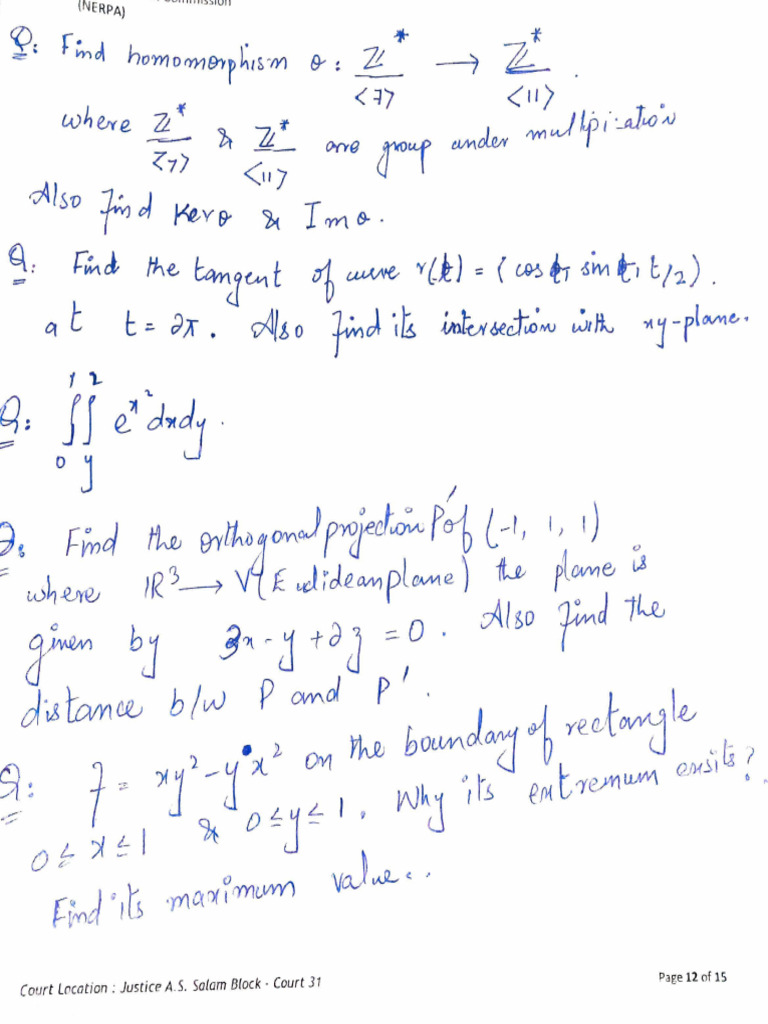 (NERPA)
Q: Find homomorphism θ: Z*/<7> → Z*/<11>.
where Z*/<7> & Z*/<11> are group under multipication
Also find Kerθ & Imθ.
Q: Find the tangent of curve r(t) = (cos t, sin t, t/2).
at t = 2π. Also find its intersection with xy-plane.
Q: ∫₀¹∫ᵧ² e^x² dxdy.
Q: Find the orthogonal projection P' of (-1, 1, 1)
where IR³ → V(Euclidean plane) the plane is
given by 3x - y + 2z = 0. Also find the
distance b/w P and P'.
Q: f = xy² - y x² on the boundary of rectangle
0 ≤ x ≤ 1 & 0 ≤ y ≤ 1. Why its extremum exsits?
Find its maximum value..
Court Location : Justice A.S. Salam Block - Court 31
Page 12 of 15